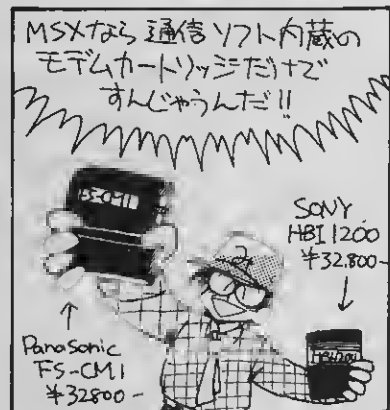 MSXなら通信ソフト内蔵の
モデムカートリッジだけで
すんじゃうんだ!!
FS-CM1
SONY
HBI1200
¥32,800-
HBI1200
Panasonic
FS-CM1
¥32800-